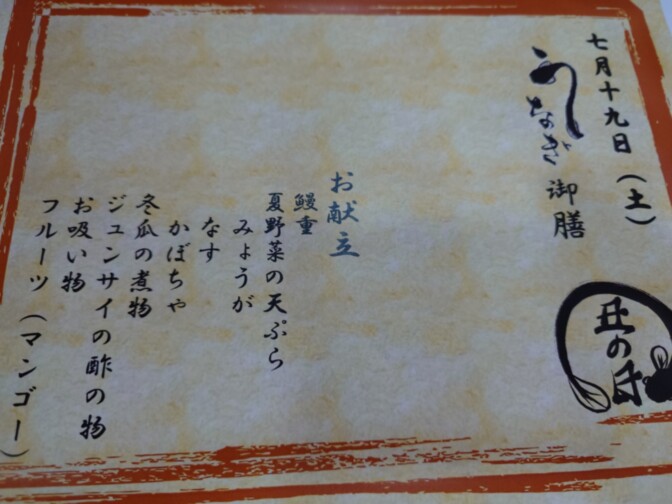 七月十九日（土）
うなぎ御膳
丑の日
お献立
鰻重
夏野菜の天ぷら
みょうが
なす
かぼちゃ
冬瓜の煮物
ジュンサイの酢の物
お吸い物
フルーツ（マンゴー）